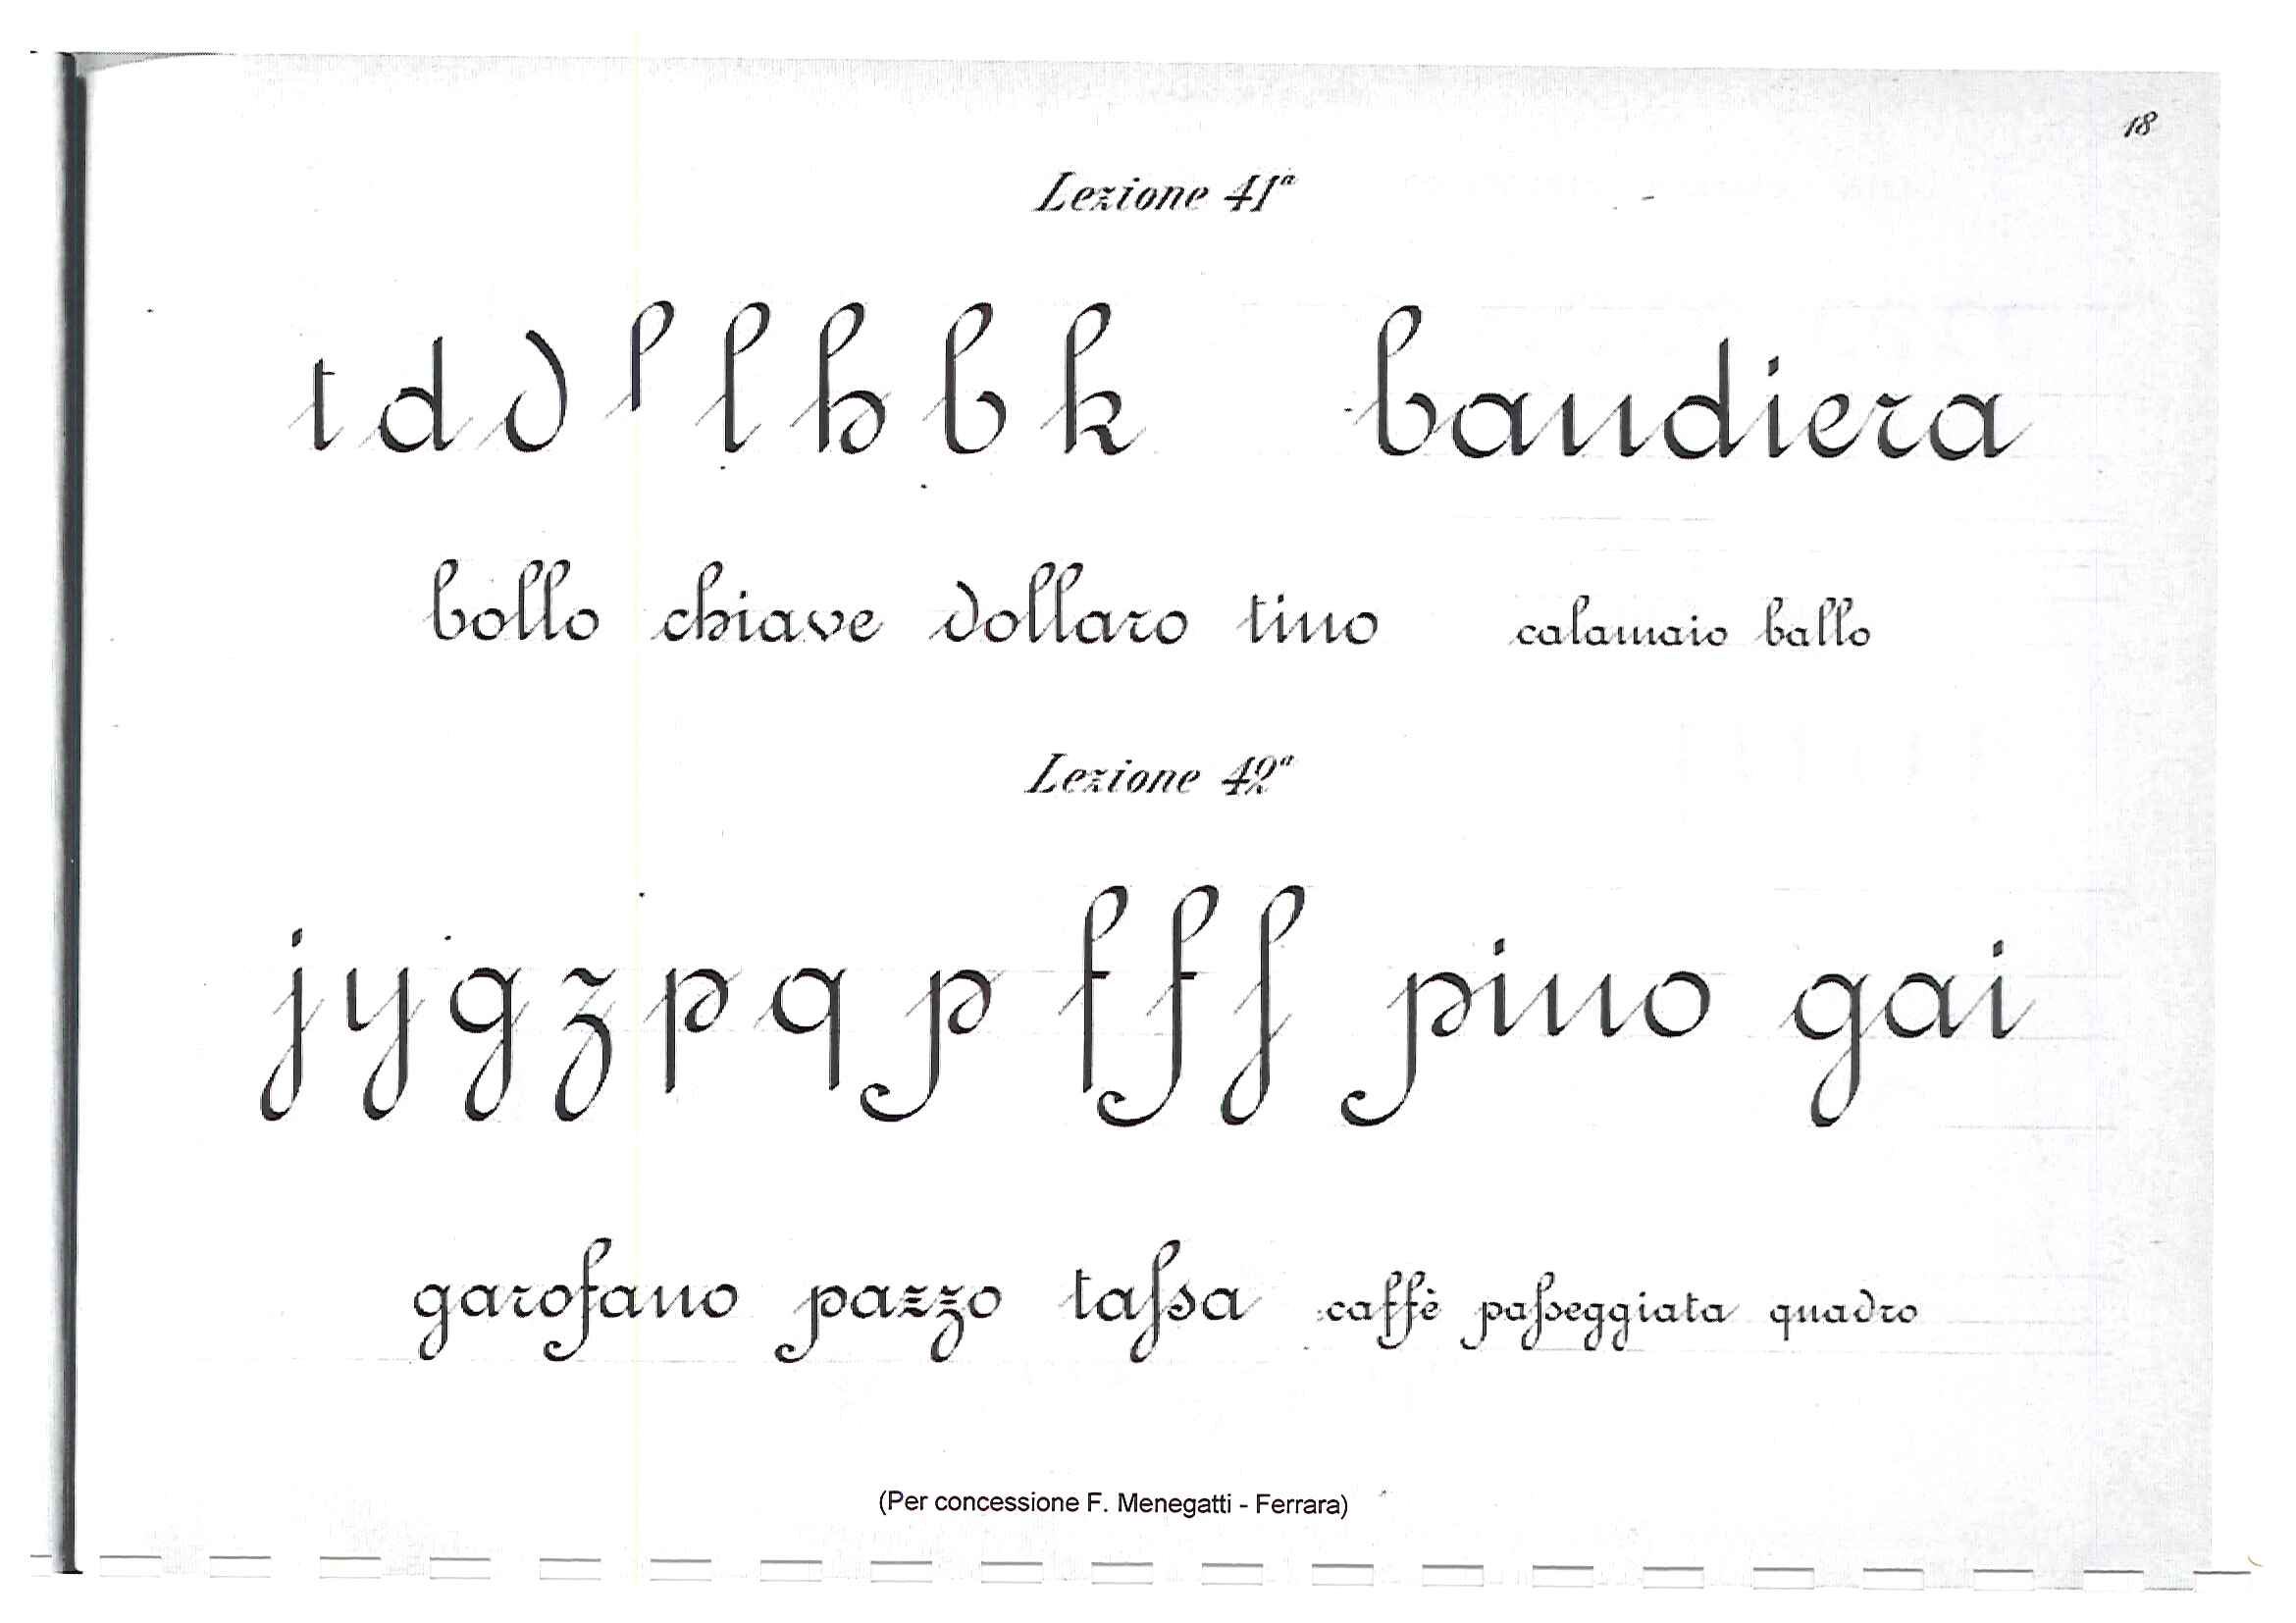 18
Lezione 41ª
t d d l l h b k bandiera
bollo chiave dollaro tino calamaio ballo
Lezione 42ª
j y g z p q p f f ſ pino gai
garofano pazzo taſsa caffè paſseggiata quadro
(Per concessione F. Menegatti - Ferrara)